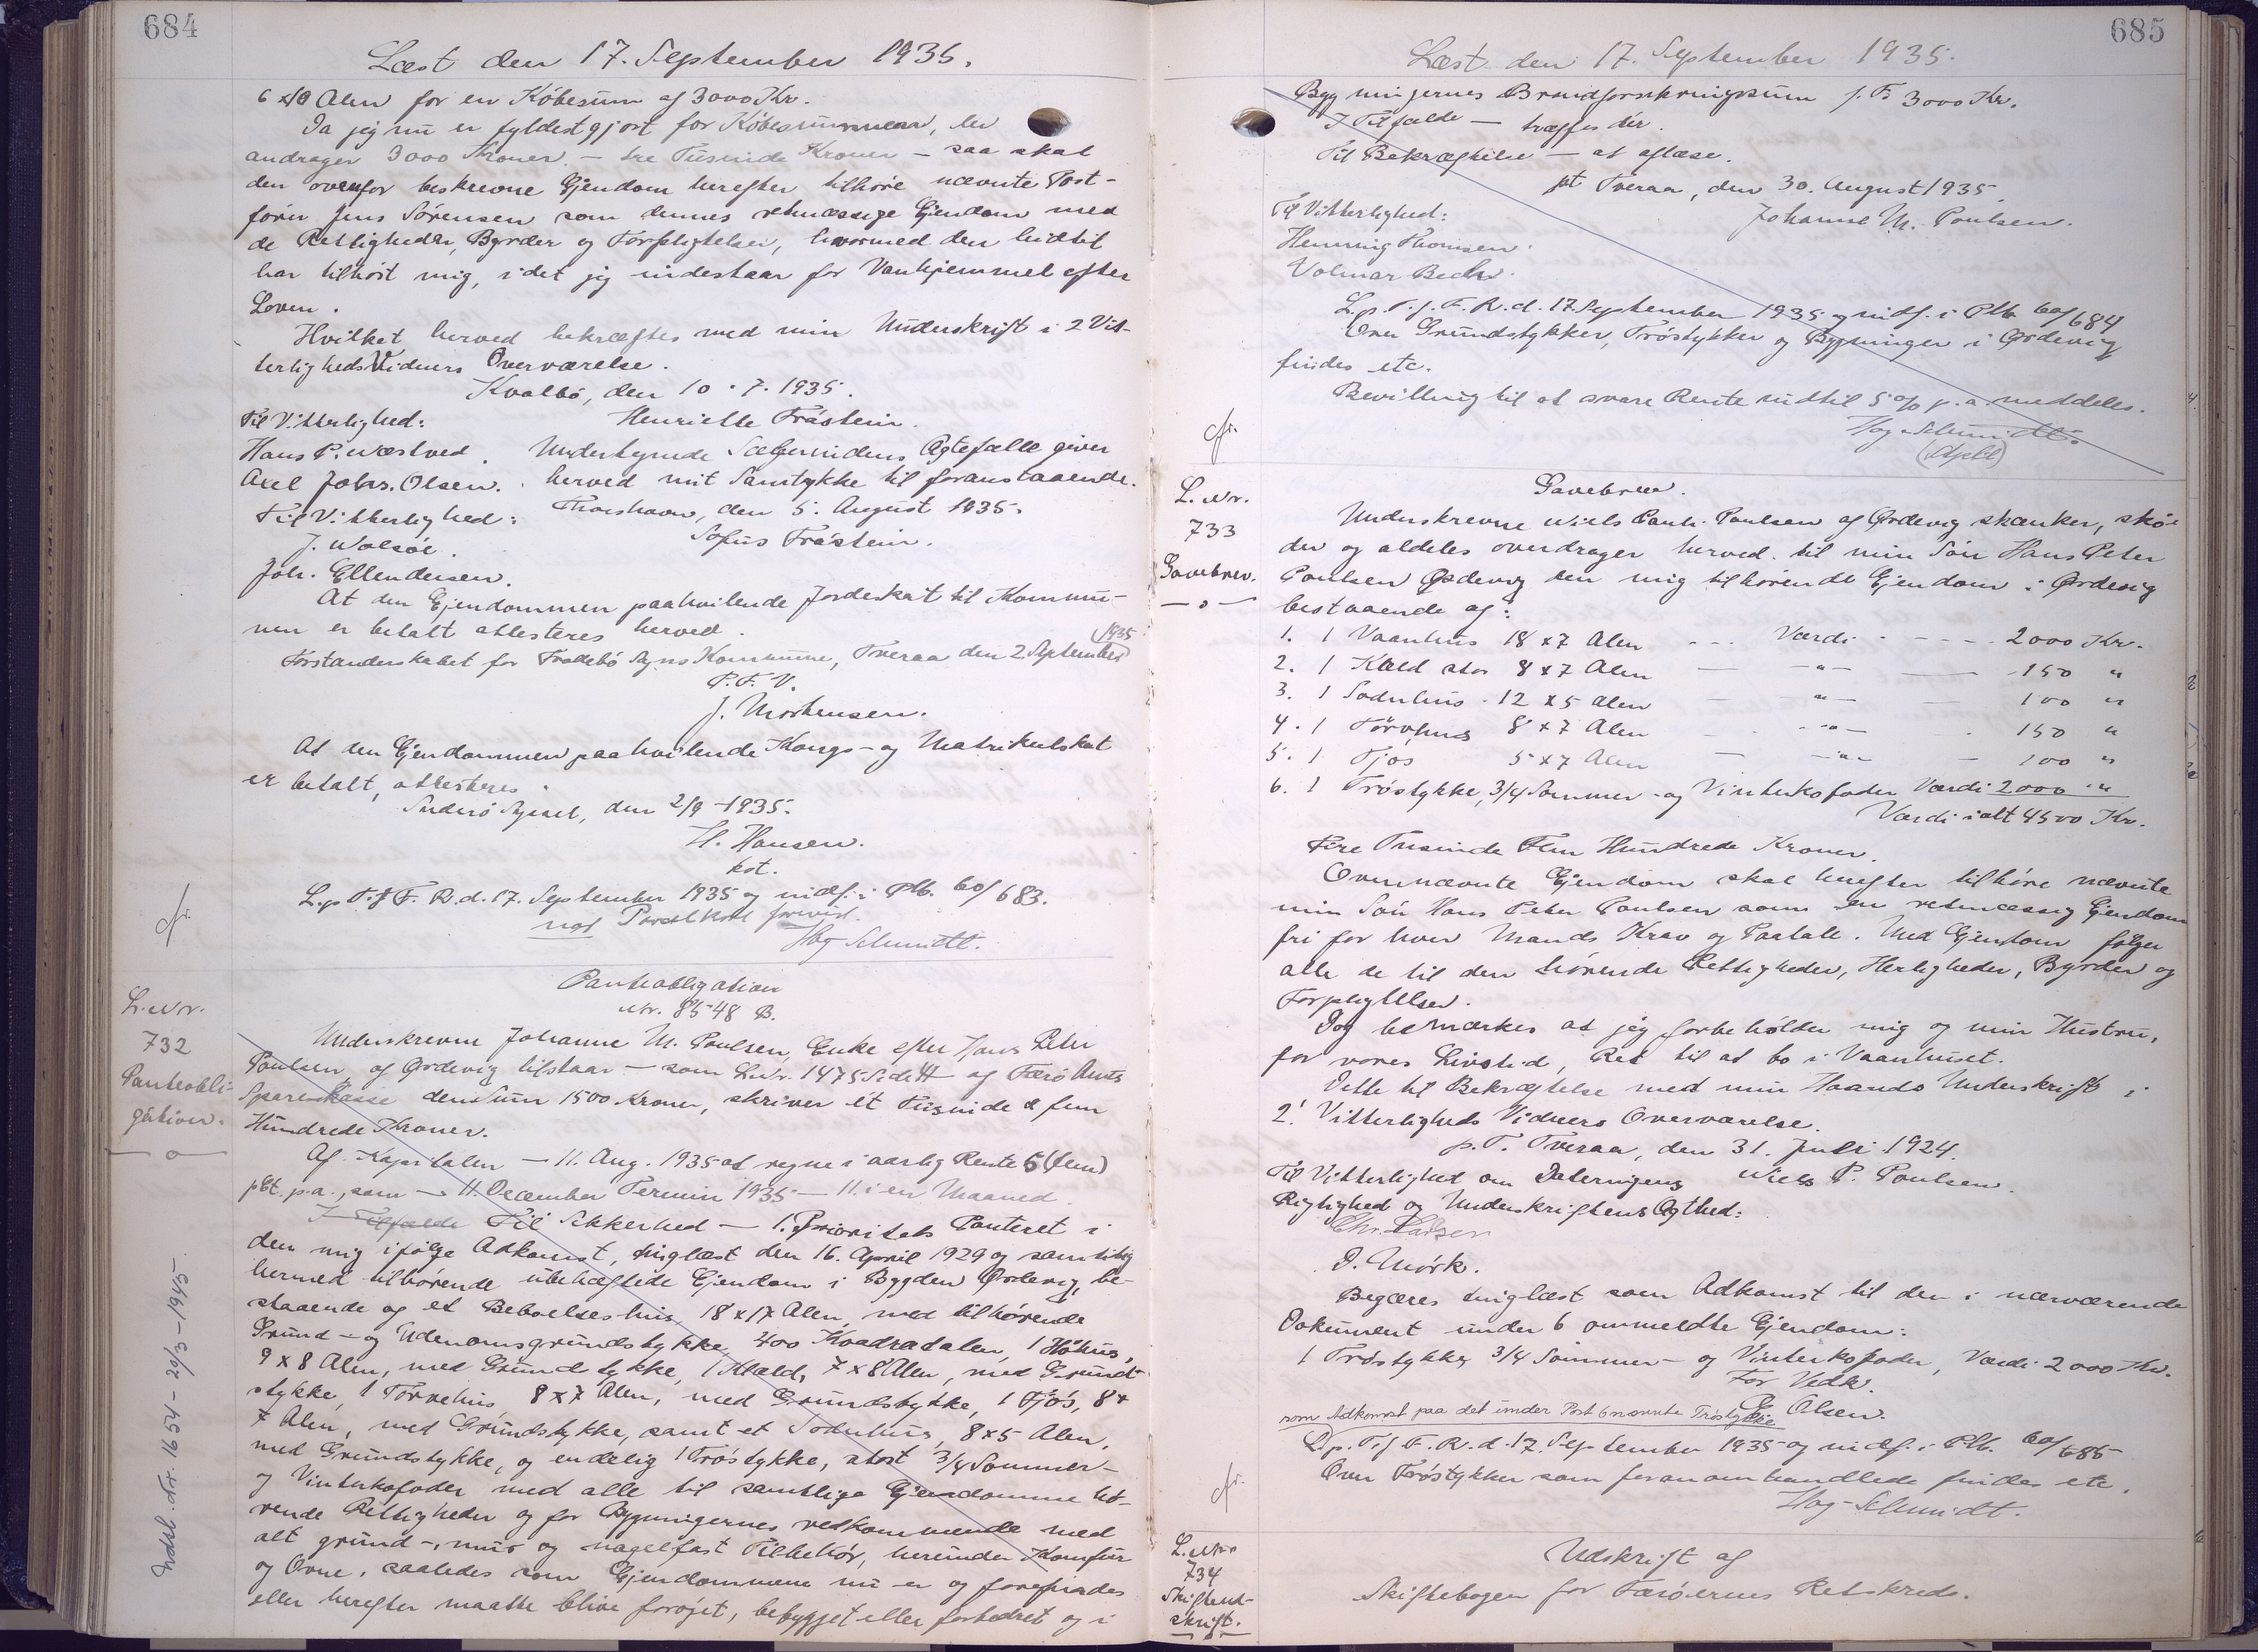 684
Læst den 17. September 1935.
6 x 10 Alen for en Købesum af 3000 Kr.
Da jeg nu er fyldestgjort for Købesummen, der
andrager 3000 Kroner. - tre Tusinde Kroner - saa skal
den ovenfor beskrevne Ejendom herefter tilhøre nævnte Post-
fører Jens Sørensen som dennes retmæssige Ejendom med
de Rettigheder, Byrder og Forpligtelser, hvormed den hidtil
har tilhørt mig, idet jeg indestaar for Vanhjemmel efter
Loven.
Hvilket herved bekræftes med min Underskrift i 2 Vit-
terligheds Vidners Overværelse.
Kvalbø, den 10. 7. 1935.
Til Vitterlighed: Henriette Trástein.
Hans P. Næstved. Undertegnede Sælgerindens Ægtefælle giver
Axel Johs. Olsen. herved mit Samtykke til foranstaaende.
Til Vitterlighed: Thorshavn, den 5. August 1935.
J. Wolsøe. Sofus Trástein.
Joh. Ellendersen.
At den Ejendommen paahvilende Jordeskat til Kommu-
nen er betalt attesteres herved.
Forstanderskabet for Froðebø Sogns Kommune, Tveraa den 2 September 1935
P. F. V.
J. Mortensen.
At den Ejendommen paahvilende Kongs- og Matrikulskat
er betalt, attesteres.
Suderø Syssel, den 2/9 - 1935.
H. Hansen.
kst.
L. p. T. f. F. R. d. 17. September 1935 og indf. i Ptb. 60/683.
Hag Schmidt.
L. Nr.
732
Panteobli-
gation.
Panteobligation
Nr. 8548 B.
Underskrevne Johanne M. Poulsen, Enke efter Hans Peter
Poulsen, af Ørdevig tilstaar - som L. Nr. 1475 Side 44 af Færø Amts
Sparekasse den Sum 1500 Kroner, skriver et Tusinde & fem
Hundrede Kroner.
Af Kapitalen - 11. Aug. 1935 at regne i aarlig Rente 5 (fem)
pCt. p.a., som - 11. December Termin 1935 - 11. i en Maaned.
I Tilfælde Til Sikkerhed - 1. Prioritets Panteret i
den mig ifølge Adkomst, tinglæst den 16. April 1929 og samtidig
hermed tilhørende ubehæftede Ejendom i Bygden Ørdevig, be-
staaende og et Beboelseshus 18 x 17 Alen, med tilhørende
Grund- og Udenomsgrundstykke 400 Kvadratalen, 1 Høhus,
9 x 8 Alen, med Grundstykke, 1 Kjald, 7 x 8 Alen, med Grund-
stykke, 1 Tørvehus 8 x 7 Alen, med Grundstykke, 1 Fjós, 8 x
7 Alen, med Grundstykke, samt et Sodnhus, 8 x 5 Alen,
med Grundstykke, og endelig 1 Trøstykke, stort 3/4 Sommer-
og Vinterkofoder med alle til samtlige Ejendomme hø-
rende Rettigheder og for Bygningernes vedkommende med
alt grund-, mur og nagelfast Tilbehør, herunder Komfur
og Ovne, saaledes som Ejendommene nu er og forefindes
eller herefter maatte blive forøjet, bebygget eller forbedret og i
Indsl. Nr. 1654 - 20/3 - 1945.
685
Læst den 17. September 1935.
Bygningernes Brandforsikringssum f. T. 3000 Kr.
I Tilfælde - træffes dér.
Til Bekræftelse - at aflæse.
pt Tveraa, den 30. August 1935
Til Vitterlighed: Johanne M. Poulsen.
Henning Thomsen.
Volmar Bech.
L. p. T. f. F. R. d. 17. September 1935 og indf. i Ptb. 60/684
Over Grundstykker, Trøstykker og Bygninger i Ørdevig
findes etc.
Bevilling til at svare Rente indtil 5 % p. a. meddeles.
Hag Schmidt.
L. Nr.
733
Gavebrev.
Gavebrev.
Underskrevne Niels Pauli Poulsen af Ørdevig skænker, skø-
der og aldeles overdrager herved til min Søn Hans Peter
Poulsen Ørdevig den mig tilhørende Ejendom i Ørdevig
bestaaende af:
1. 1 Vaanhus 18 x 7 Alen - - - Værdi - - - - 2000 Kr.
2. 1 Kæld stor 8 x 7 Alen - - " - - 150 "
3. 1 Sodnhus - 12 x 5 Alen - - " - - 100 "
4. 1 Tørvhus 8 x 7 Alen - - " - - 150 "
5. 1 Fjos 5 x 7 Alen - - " - - 100 "
6. 1 Trøstykke, 3/4 Sommer- og Vinterkofoder Værdi 2000 "
Værdi ialt 4500 Kr.
Fire Tusinde Fem Hundrede Kroner.
Ovennævnte Ejendom skal herefter tilhøre nævnte
min Søn Hans Peter Poulsen som en retmæssig Ejendom
fri for hver Mands Krav og Paatale. Med Ejendom følger
alle de til den hørende Rettigheder, Herligheder, Byrder og
Forpligtelser.
Dog bemærkes at jeg forbeholder mig og min Hustru,
for vores Livstid, Ret til at bo i Vaanhuset.
Dette til Bekræftelse med min Haands Underskrift i
2! Vitterligheds Vidners Overværelse.
p. T. Tveraa, den 31. Juli 1924.
Til Vitterlighed om Dateringens Niels P. Poulsen.
Rigtighed og Underskriftens Ægthed:
Chr. Larsen
D. Mørk.
Begæres tinglæst som Adkomst til den i nærværende
Dokument under 6 ommeldte Ejendom:
1 Trøstykke 3/4 Sommer- og Vinterkofoder, Værdi 2000 Kr.
For Vedk.
Olsen.
som Adkomst paa det under Post 6 nævnte Trøstykke
L. p. T. f. F. R. d. 17. September 1935 og indf. i Ptb. 60/685
Over Trøstykker som foranomhandlede findes etc.
Hag Schmidt.
L. Nr.
734
Skifteud-
skrift.
Udskrift af
Skiftebogen for Færøernes Retskreds.